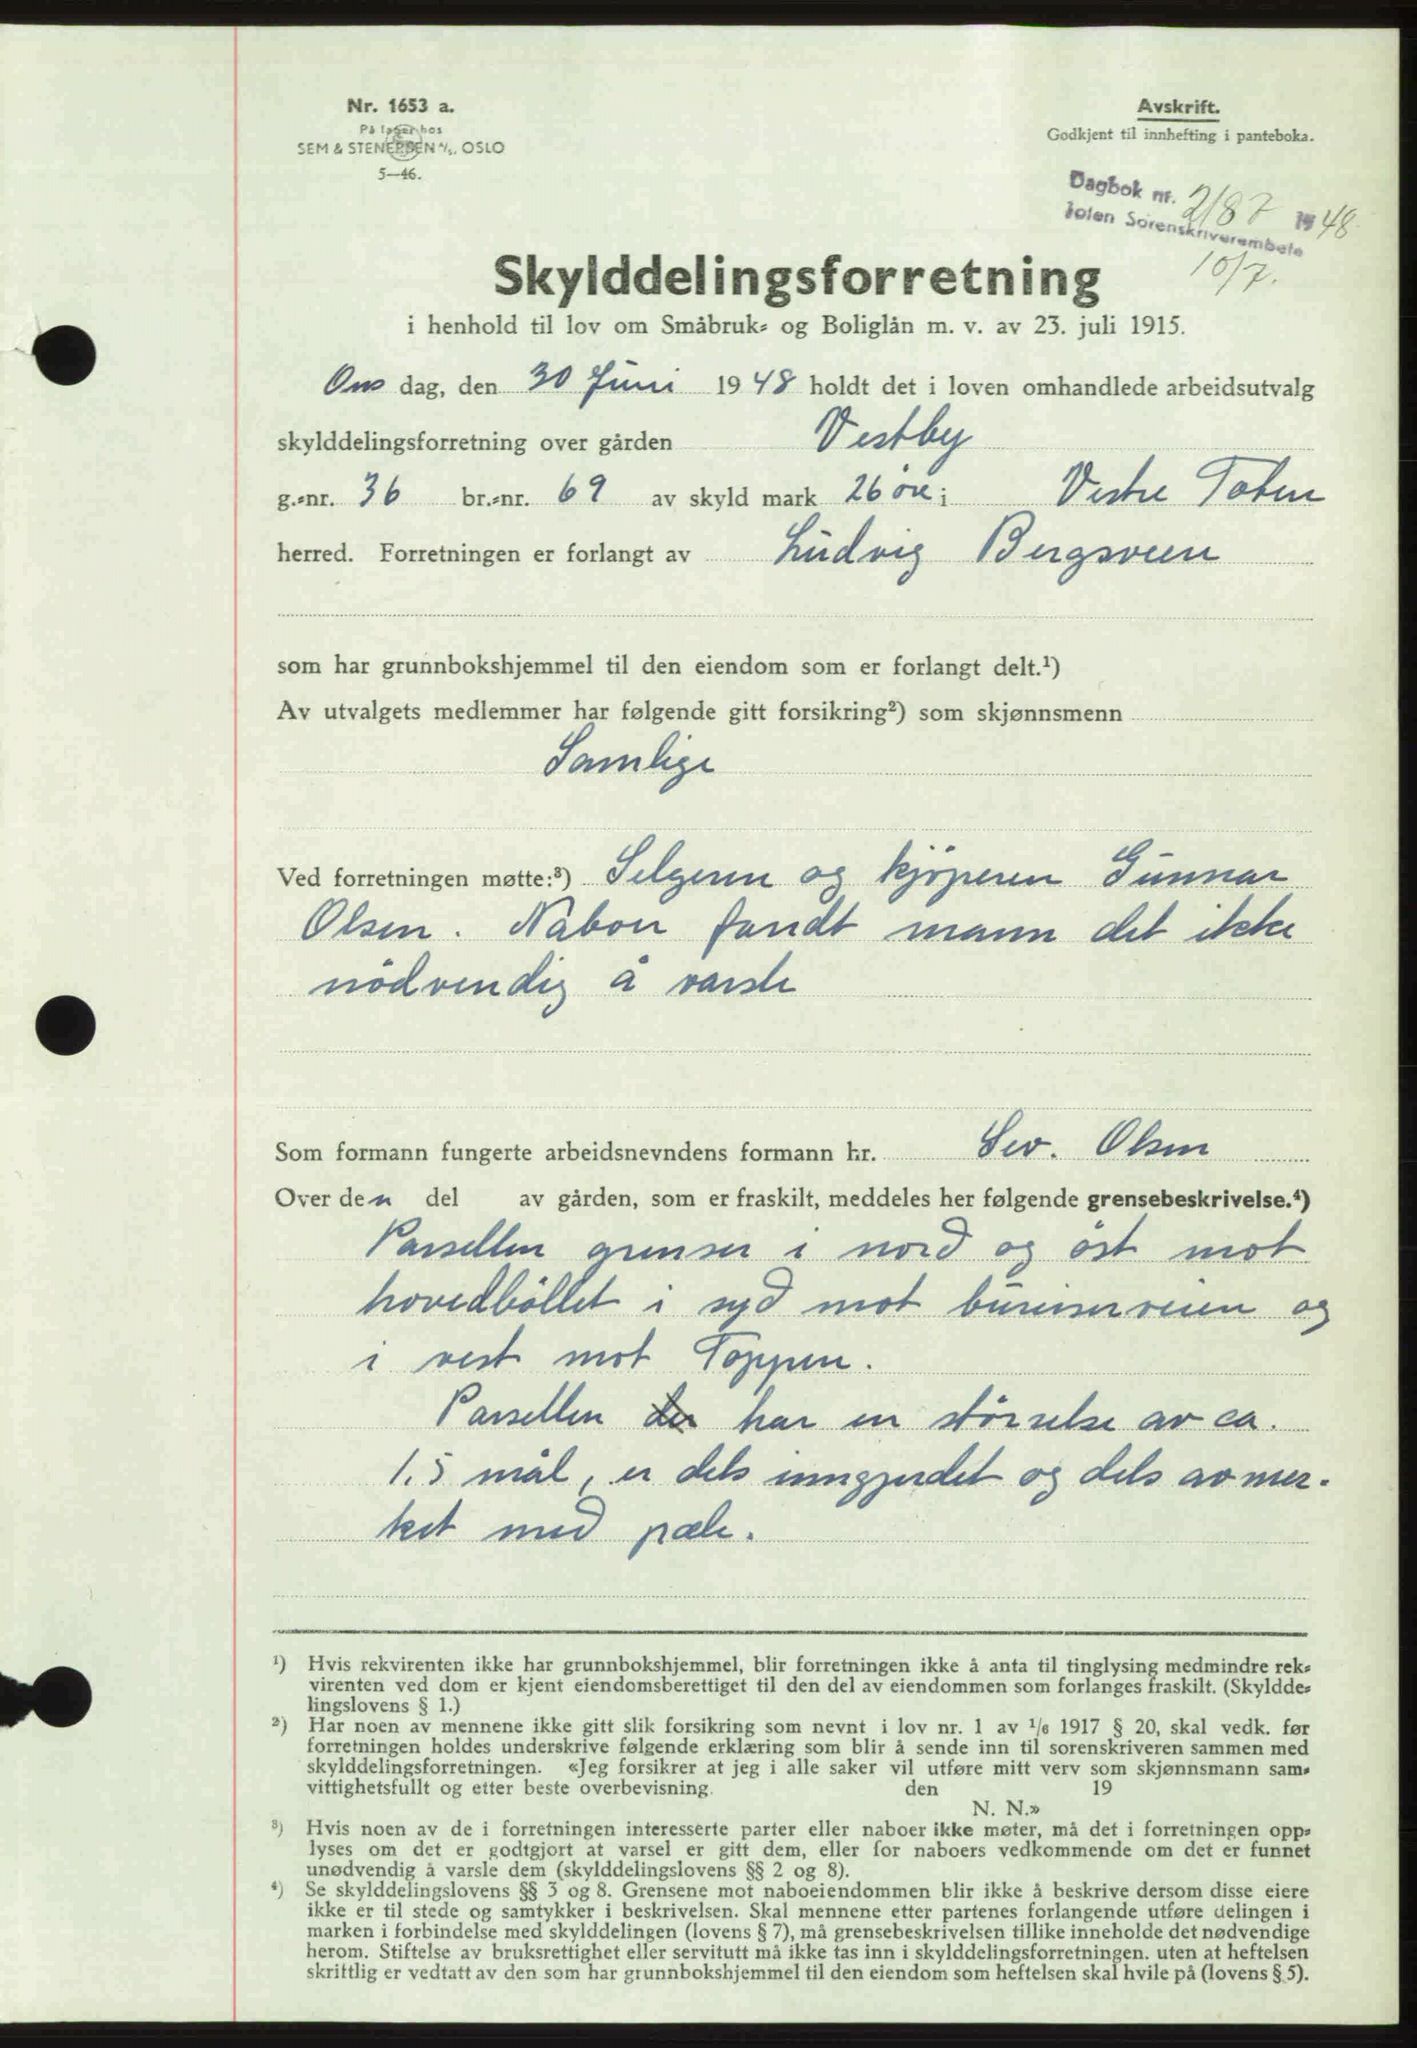 Nr. 1653 a.
På lager hos
SEM & STENERSEN A/S, OSLO
5—46.
Avskrift.
Godkjent til innhefting i panteboka.
Dagbok nr. 2187 1948
Toten Sorenskriverembete
10/7.
Skylddelingsforretning
i henhold til lov om Småbruk- og Boliglån m. v. av 23. juli 1915.
Ons dag, den 30 Juni 1948 holdt det i loven omhandlede arbeidsutvalg
skylddelingsforretning over gården Vestby
g.-nr. 36 br.-nr. 69 av skyld mark 26 öre i Vestre Toten
herred. Forretningen er forlangt av Ludvig Bergsveen
som har grunnbokshjemmel til den eiendom som er forlangt delt.¹)
Av utvalgets medlemmer har følgende gitt forsikring²) som skjønnsmenn
Samlige
Ved forretningen møtte:³) Selgeren og kjöperen Gunnar
Olsen. Naboer fandt mann det ikke
nödvendig å varsle
Som formann fungerte arbeidsnevndens formann hr. Sev. Olsen
Over den del av gården, som er fraskilt, meddeles her følgende grensebeskrivelse.⁴)
Parsellen grenser i nord og öst mot
hovedbölet i syd mot bureiserveien og
i vest mot Toppen.
Parsellen der har en störrelse av ca.
1,5 mål, er dels inngjerdet og dels avmer-
ket med pæle.
¹) Hvis rekvirenten ikke har grunnbokshjemmel, blir forretningen ikke å anta til tinglysing medmindre rek-
virenten ved dom er kjent eiendomsberettiget til den del av eiendommen som forlanges fraskilt. (Skyldde-
lingslovens § 1.)
²) Har noen av mennene ikke gitt slik forsikring som nevnt i lov nr. 1 av 1/6 1917 § 20, skal vedk. før
forretningen holdes underskrive følgende erklæring som blir å sende inn til sorenskriveren sammen med
skylddelingsforretningen. «Jeg forsikrer at jeg i alle saker vil utføre mitt verv som skjønnsmann sam-
vittighetsfullt og etter beste overbevisning. den 19
N. N.»
³) Hvis noen av de i forretningen interesserte parter eller naboer ikke møter, må det i forretningen opp-
lyses om det er godtgjort at varsel er gitt dem, eller for naboers vedkommende om det er funnet
unødvendig å varsle dem (skylddelingslovens §§ 2 og 8).
⁴) Se skylddelingslovens §§ 3 og 8. Grensene mot naboeiendommen blir ikke å beskrive dersom disse eiere
ikke er til stede og samtykker i beskrivelsen. Skal mennene etter partenes forlangende utføre delingen i
marken i forbindelse med skylddelingen (lovens § 7), må grensebeskrivelsen tillike inneholde det nødvendige
herom. Stiftelse av bruksrettighet eller servitutt må ikke tas inn i skylddelingsforretningen. uten at heftelsen
skrittlig er vedtatt av den som har grunnbokshjemmel til den eiendom som heftelsen skal hvile på (lovens § 5).